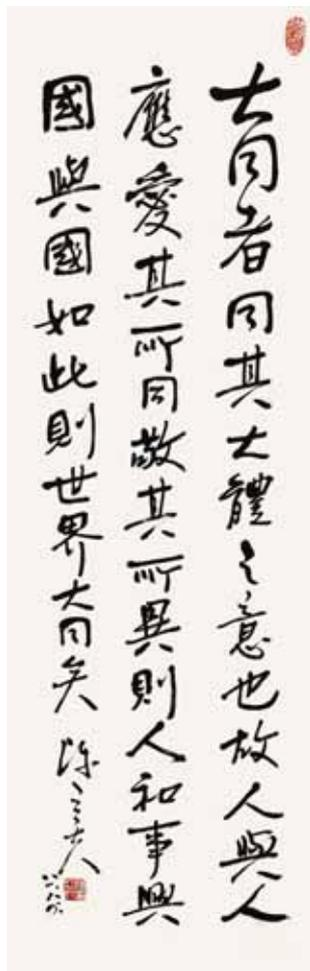 大同者同其大體之意也故人與人
應愛其所同敬其所異則人和事興
國與國如此則世界大同矣